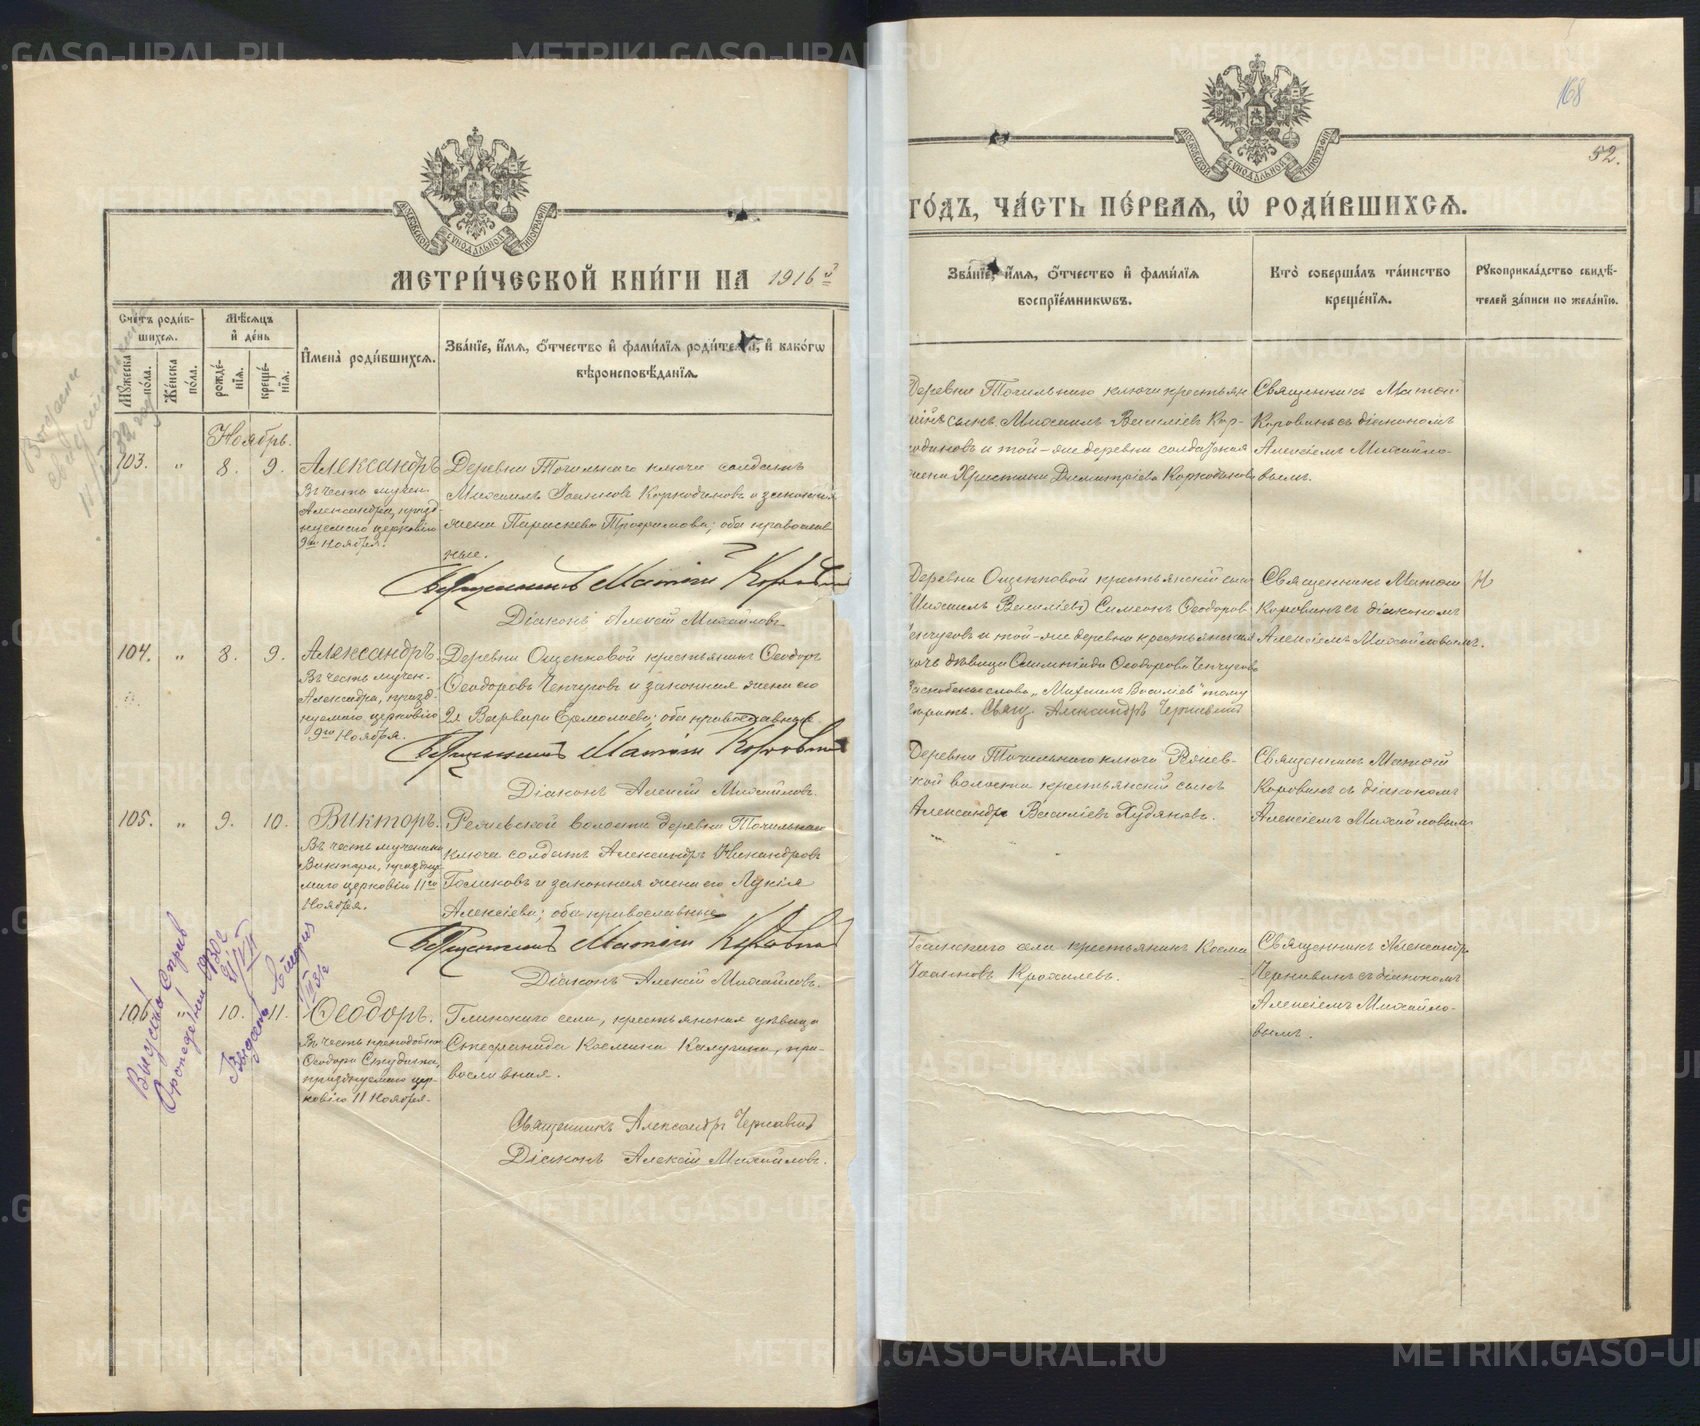 МЕТРИ́ЧЕСКОЙ КНИ́ГИ НА 1916й
Сче́тъ роди́в-
шихсѧ.
Мѣ́сѧцъ
и҆ де́нь
Мꙋ́жеска
по́ла.
Же́нска
по́ла.
рожде́-
нїѧ.
креще́-
нїѧ.
И҆мена̀ роди́вшихсѧ.
Зва́нїе, и҆́мѧ, ѻ҆́тчество и҆ фами́лїѧ роди́телей, и҆ како́гѡ
вѣроисповѣ́данїѧ.
Ноябрь.
103. " 8. 9.
Александръ
Въ честь мучен.
Александра, празд-
нуемаго церковію
9го Ноября.
Деревни Точильнаго ключа солдатъ
Михаилъ Іоанновъ Коркодиновъ и законная
жена Параскева Трофимова; оба православ-
ные.
Священникъ Матѳій Коровинъ
Діаконъ Алексій Михайловъ.
104. " 8. 9.
Александръ.
Въ честь мучен.
Александра, празд-
нуемаго церковію
9го Ноября.
Деревни Ощепковой крестьянинъ Ѳеодоръ
Ѳеодоровъ Ченчуговъ и законная жена его
2я Варвара Ермолаева; оба православные.
Священникъ Матѳій Коровинъ
Діаконъ Алексій Михайловъ.
105. " 9. 10.
Викторъ.
Въ честь мученика
Виктора, праздну-
маго церковію 11го
Ноября.
Режевской волости деревни Точильнаго
ключа солдатъ Александръ Никандровъ
Голиковъ и законная жена его Лукія
Алексіева; оба православные
Священникъ Матѳій Коровинъ
Діаконъ Алексій Михайловъ.
106. " 10. 11.
Ѳеодоръ.
Въ честь преподобнаго
Ѳеодора Студита,
празднуемаго цер-
ковію 11 Ноября.
Глинскаго села, крестьянская дѣвица
Стефанида Космина Калугина, пра-
вославная.
Священникъ Александръ Чернавинъ
Діаконъ Алексій Михайловъ.
168
52.
ГО́ДЪ, ЧА́СТЬ ПЕ́РВАѦ, Ѽ РОДИ́ВШИХСѦ.
Зва́нїе, и҆́мѧ, ѻ҆́тчество и҆ фами́лїѧ
воспрїе́мникѡвъ.
Кто̀ соверша́лъ та́инство
креще́нїѧ.
Рꙋкоприкла́дство свидѣ́-
телей за́писи по жела́нїю.
Деревни Точильнаго ключа крестьян
сынъ Михаилъ Василіевъ Кор-
кодиновъ и той-же деревни солдатская
жена Христина Димитріева Коркодинова
Священникъ Матѳій
Коровинъ съ діакономъ
Алексіемъ Михайло-
вымъ.
Деревни Ощепковой крестьянскій сынъ
(Михаилъ Василіевъ) Симеонъ Ѳеодоровъ
Ченчуговъ и той-же деревни крестьянская
дочь дѣвица Олимпіада Ѳеодорова Ченчугова
слова "Михаилъ Василіевъ" тому
Свящ. Александръ Чернавинъ
Священникъ Матѳій
Коровинъ съ діакономъ
Алексіемъ Михайловымъ.
Деревни Точильнаго ключа Режев-
ской волости крестьянскій сынъ
Александръ Василіевъ Худяковъ.
Священникъ Матѳій
Коровинъ съ діакономъ
Алексіемъ Михайловымъ
Глинскаго села крестьянинъ Косма
Іоанновъ Крохалевъ.
Священникъ Александръ
Чернавинъ съ діакономъ
Алексіемъ Михайло-
вымъ.
METRIKI.GASO-URAL.RU